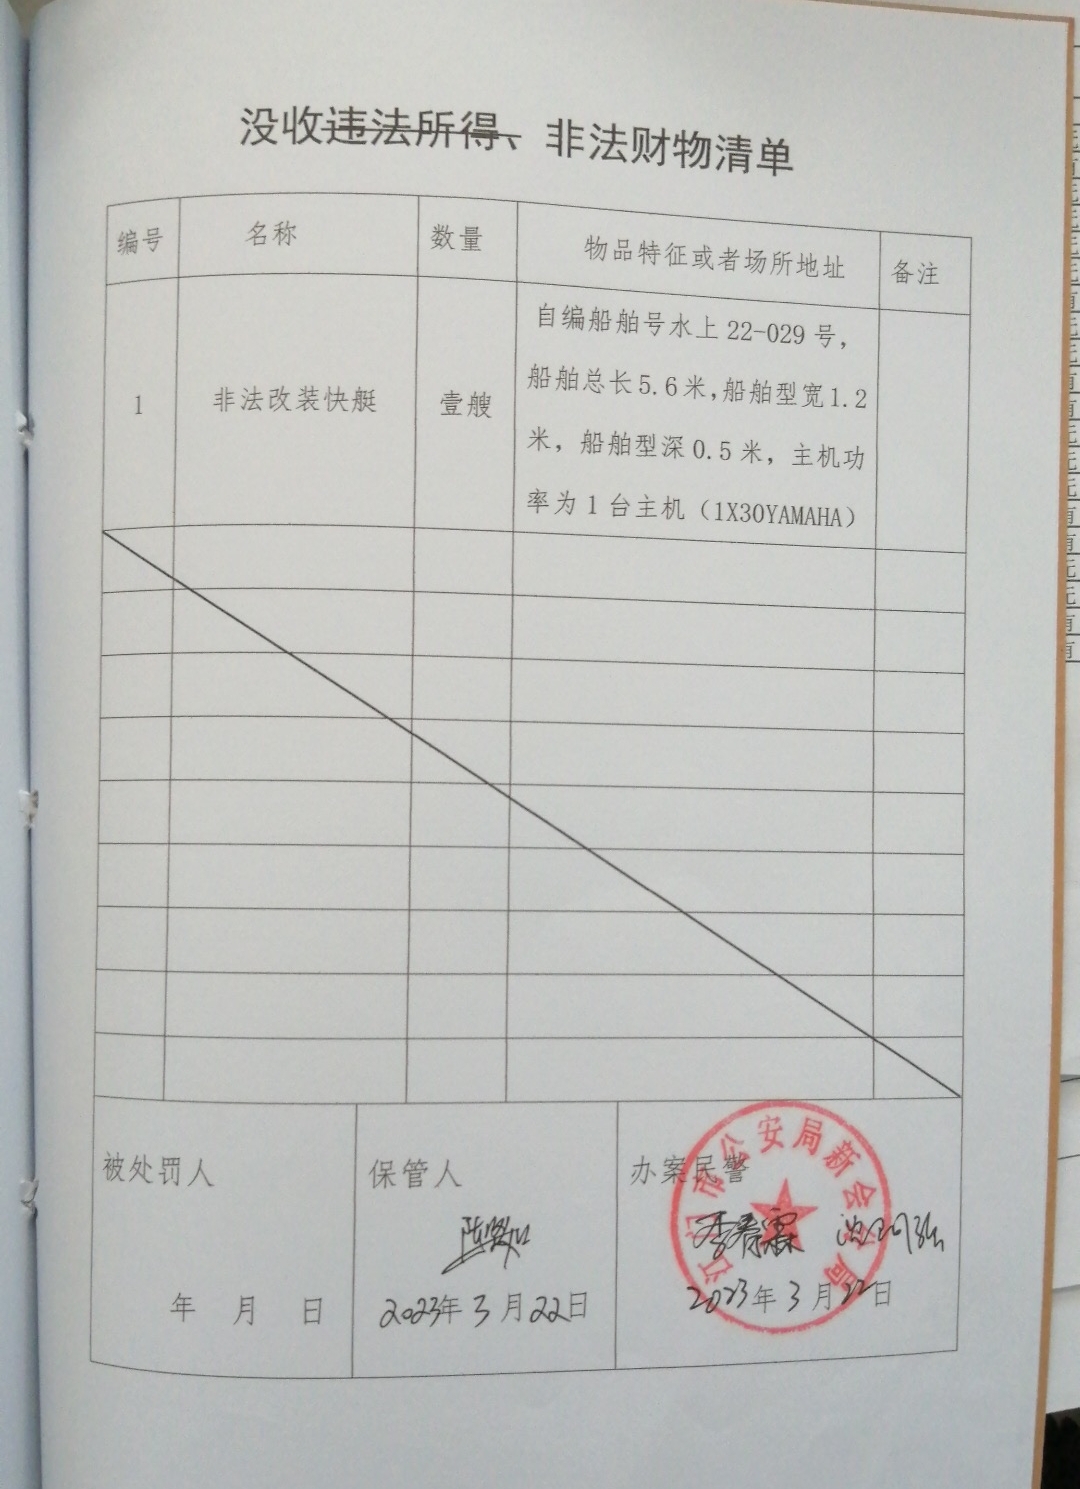 没收违法所得、非法财物清单
编号 名称 数量 物品特征或者场所地址 备注
1 非法改装快艇 壹艘
自编船舶号水上22-029号，
船舶总长5.6米，船舶型宽1.2
米，船舶型深0.5米，主机功
率为1台主机（1X30YAMAHA）
被处罚人 保管人 办案民警
江门市公安局新会分局
李春霖
年 月 日 2023年3月22日 2023年3月22日